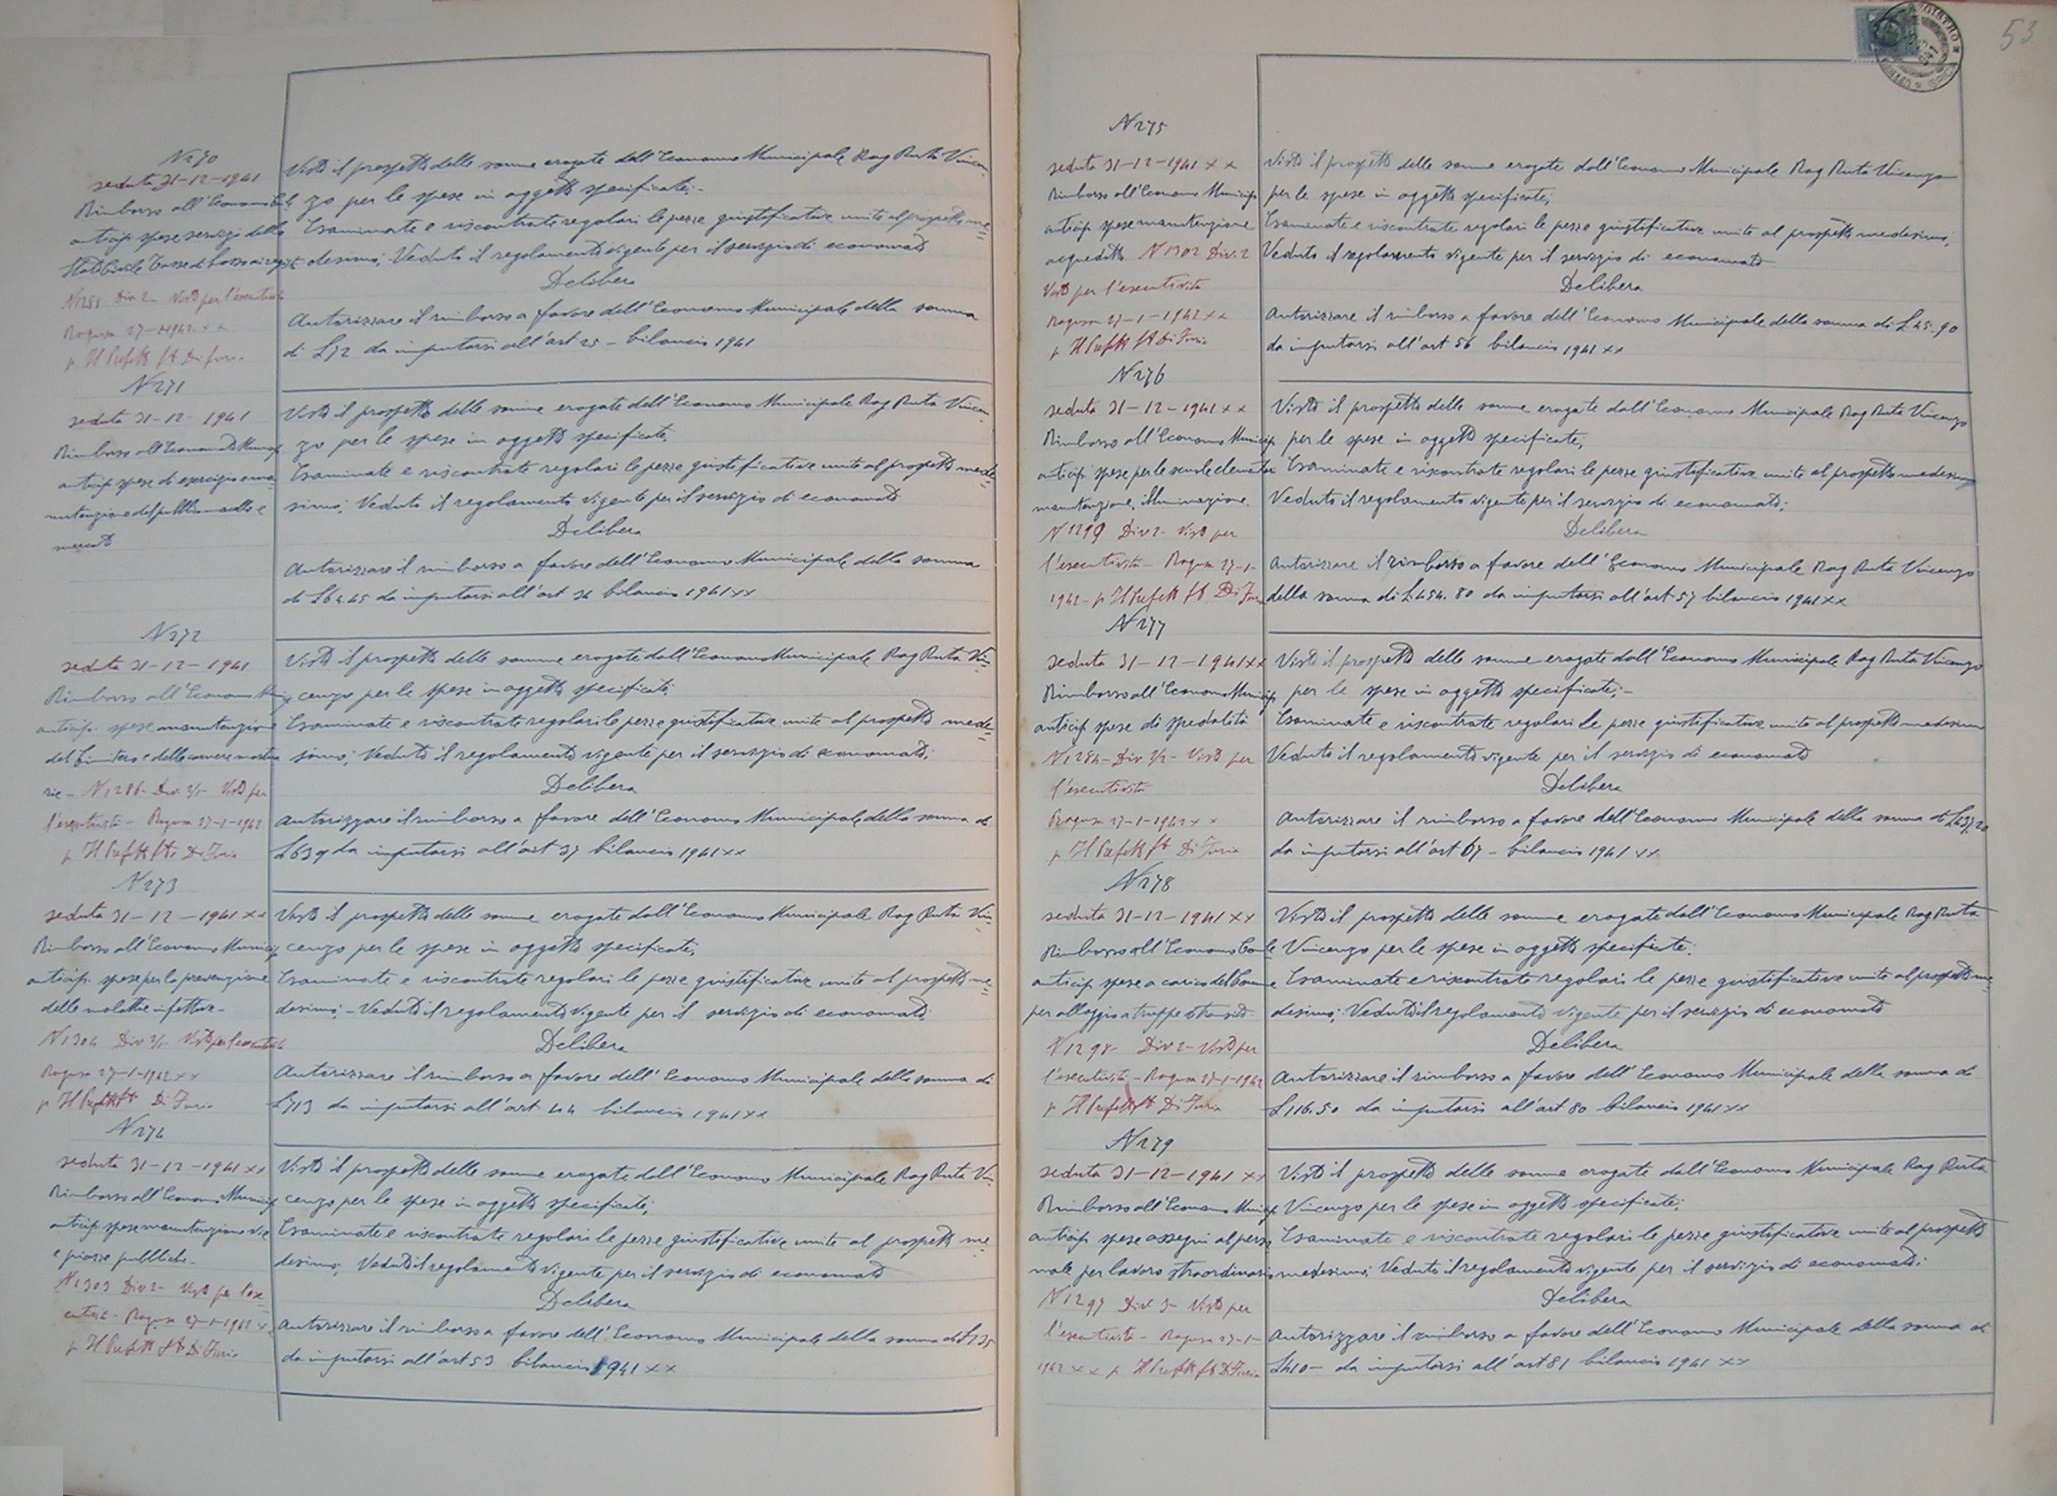 N 270
seduta 31-12-1941
Rimborso all'Economo
anticip. spese servizi dello
Stato Civile
N 1288 Div 2 - Visto per l'esecutività
Ragusa 27-1-1942 XX
p. Il Prefetto ft Di Furia
Visto il prospetto delle somme erogate dall'Economo Municipale Rag Ruta Vincen
zo per le spese in oggetto specificate;-
Esaminate e riscontrate regolari le pezze giustificative unite al prospetto me=
desimo; Veduto il regolamento vigente per il servizio di economato
Delibera
Autorizzare il rimborso a favore dell'Economo Municipale della somma
di L 72 da imputarsi all'art 25 - bilancio 1941
N 271
seduta 31-12-1941
Rimborso all'Economo Municip
anticip. spese di esercizio e ma=
nutenzione del pubblico macello e
mercato
Visto il prospetto delle somme erogate dall'Economo Municipale Rag Ruta Vincen
zo per le spese in oggetto specificate;
Esaminate e riscontrate regolari le pezze giustificative unite al prospetto mede=
simo; Veduto il regolamento vigente per il servizio di economato
Delibera
Autorizzare il rimborso a favore dell'Economo Municipale della somma
di L 64.45 da imputarsi all'art 34 bilancio 1941 XX
N 272
seduta 31-12-1941
Rimborso all'Economo Munic
anticip. spese manutenzione
del Cimitero e delle camere mortua
rie - N 1286 Div 2/1 - Visto per
l'esecutività - Ragusa 27-1-1942
p. Il Prefetto ft Di Furia
Visto il prospetto delle somme erogate dall'Economo Municipale Rag Ruta Vin=
cenzo per le spese in oggetto specificate;
Esaminate e riscontrate regolari le pezze giustificative unite al prospetto mede=
simo; Veduto il regolamento vigente per il servizio di economato;
Delibera
Autorizzare il rimborso a favore dell'Economo Municipale della somma di
L 639 da imputarsi all'art 37 bilancio 1941 XX
N 273
seduta 31-12-1941 XX
Rimborso all'Economo Municip
anticip. spese per la prevenzione
delle malattie infettive -
N 1304 Div 2/1 - Visto per l'esecutività
Ragusa 27-1-1942 XX
p. Il Prefetto ft Di Furia
Visto il prospetto delle somme erogate dall'Economo Municipale Rag Ruta Vin=
cenzo per le spese in oggetto specificate;
Esaminate e riscontrate regolari le pezze giustificative unite al prospetto me=
desimo; - Veduto il regolamento vigente per il servizio di economato;
Delibera
Autorizzare il rimborso a favore dell'Economo Municipale della somma di
L 713 da imputarsi all'art 44 bilancio 1941 XX
N 274
seduta 31-12-1941 XX
Rimborso all'Economo Municip
anticip. spese manutenzione vie
e piazze pubbliche -
N 1303 Div 2 - Visto per l'ese=
cutività - Ragusa 27-1-1942 X
p. Il Prefetto ft Di Furia
Visto il prospetto delle somme erogate dall'Economo Municipale Rag Ruta Vin=
cenzo per le spese in oggetto specificate;
Esaminate e riscontrate regolari le pezze giustificative unite al prospetto me=
desimo; Veduto il regolamento vigente per il servizio di economato
Delibera
Autorizzare il rimborso a favore dell'Economo Municipale della somma di L 135
da imputarsi all'art 53 bilancio 1941 XX
53
N 275
seduta 31-12-1941 XX
Rimborso all'Economo Municip
anticip spese manutenzione
acquedotto N 1302 Div. 2
Visto per l'esecutività
Ragusa 27-1-1942 XX
p. Il Prefetto ft Di Furia
Visto il prospetto delle somme erogate dall'Economo Municipale Rag Ruta Vincenzo
per le spese in oggetto specificate;
Esaminate e riscontrate regolari le pezze giustificative unite al prospetto medesimo;
Veduto il regolamento vigente per il servizio di economato
Delibera
Autorizzare il rimborso a favore dell'Economo Municipale della somma di L 45.90
da imputarsi all'art 56 bilancio 1941 XX
N 276
seduta 31-12-1941 XX
Rimborso all'Economo Municip
anticip spese per le scuole elementari
manutenzione, illuminazione.
N 1299 Div 2 - Visto per
l'esecutività - Ragusa 27-1-
1942 - p. Il Prefetto ft Di Furia
Visto il prospetto delle somme erogate dall'Economo Municipale Rag Ruta Vincenzo
per le spese in oggetto specificate;
Esaminate e riscontrate regolari le pezze giustificative unite al prospetto medesimo
Veduto il regolamento vigente per il servizio di economato;
Delibera
Autorizzare il rimborso a favore dell'Economo Municipale Rag Ruta Vincenzo
della somma di L 454.80 da imputarsi all'art 57 bilancio 1941 XX
N 277
seduta 31-12-1941 XX
Rimborso all'Economo Municip
anticip spese di spedalità
N 1284 - Div 2/2 - Visto per
l'esecutività
Ragusa 27-1-1942 XX
p. Il Prefetto ft Di Furia
Visto il prospetto delle somme erogate dall'Economo Municipale Rag Ruta Vincenzo
per le spese in oggetto specificate;-
Esaminate e riscontrate regolari le pezze giustificative unite al prospetto medesimo
Veduto il regolamento vigente per il servizio di economato
Delibera
Autorizzare il rimborso a favore dell'Economo Municipale della somma di L 437.20
da imputarsi all'art 67 - bilancio 1941 XX
N 278
seduta 31-12-1941 XX
Rimborso all'Economo Com le
anticip. spese a carico del Comune
per alloggio a truppe di transito
N 1298 - Div 2 - Visto per
l'esecutività - Ragusa 27-1-1942
p. Il Prefetto ft Di Furia
Visto il prospetto delle somme erogate dall'Economo Municipale Rag Ruta
Vincenzo per le spese in oggetto specificate;
Esaminate e riscontrate regolari le pezze giustificative unite al prospetto me=
desimo; Veduto il regolamento vigente per il servizio di economato
Delibera
Autorizzare il rimborso a favore dell'Economo Municipale della somma di
L 116.50 da imputarsi all'art 80 bilancio 1941 XX
N 279
seduta 31-12-1941 XX
Rimborso all'Economo Municip
anticip spese assegni al perso
nale per lavoro straordinario
N 1297 Div 3 - Visto per
l'esecutività - Ragusa 27-1-
1942 XX p. Il Prefetto ft Di Furia
Visto il prospetto delle somme erogate dall'Economo Municipale Rag Ruta
Vincenzo per le spese in oggetto specificate;
Esaminate e riscontrate regolari le pezze giustificative unite al prospetto
medesimo; Veduto il regolamento vigente per il servizio di economato;
Delibera
Autorizzare il rimborso a favore dell'Economo Municipale della somma di
L 410 - da imputarsi all'art 81 bilancio 1941 XX